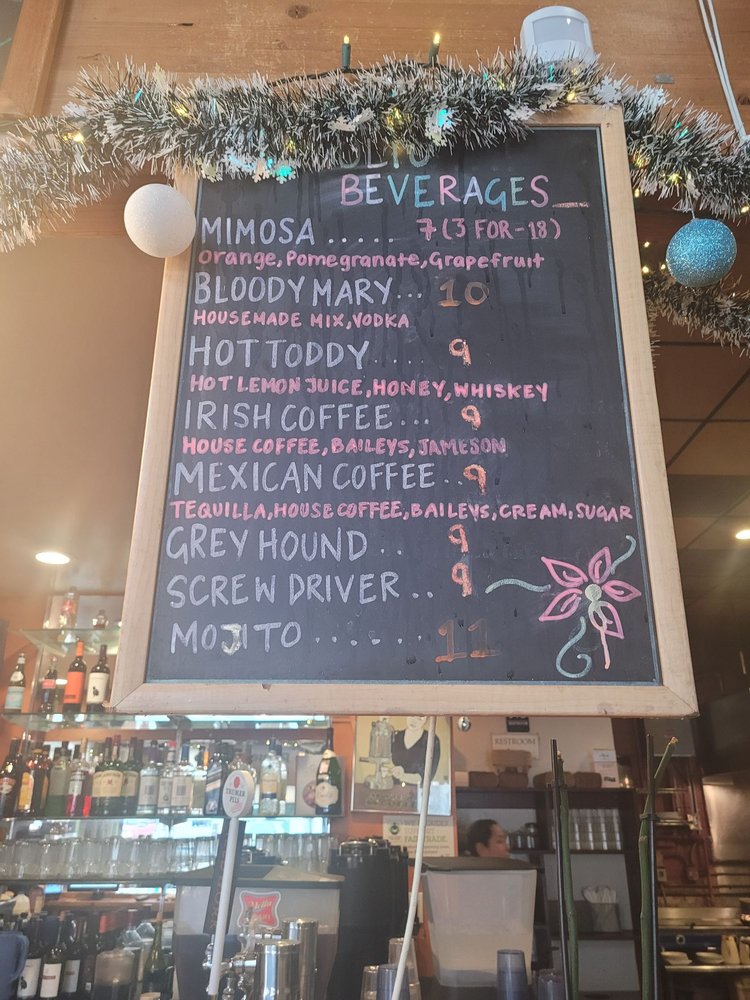 BEVERAGES
MIMOSA ..... 7 (3 FOR-18)
Orange, Pomegranate, Grapefruit
BLOODY MARY... 10
HOUSEMADE MIX, VODKA
HOT TODDY .... 9
HOT LEMON JUICE, HONEY, WHISKEY
IRISH COFFEE... 9
HOUSE COFFEE, BAILEYS, JAMESON
MEXICAN COFFEE .. 9
TEQUILLA, HOUSE COFFEE, BAILEYS, CREAM, SUGAR
GREY HOUND .. 9
SCREW DRIVER .. 9
MOJITO ....... 11
RESTROOM
TRUMER
PILS